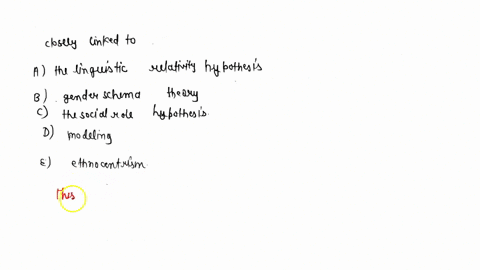 closely linked to
A) the linguistic relativity hypothesis
B) gender schema theory
C) the social role hypothesis.
D) modeling
E) ethnocentrism
This